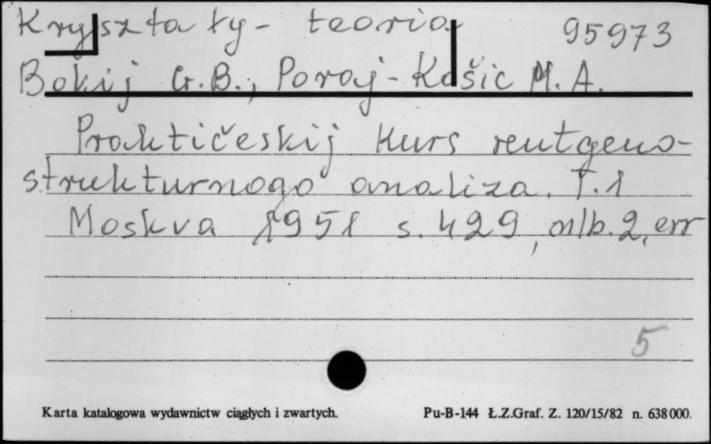 Kryształy - teoria 95973
Bokij G.B., Poraj-Košic M.A.
Praktičeskij kurs rentgeno-
strukturnogo analiza. T.1
Moskva 1951 s. 429, nlb. 2, err
5
Karta katalogowa wydawnictw ciągłych i zwartych. Pu-B-144 Ł.Z.Graf. Z. 120/15/82 n. 638000.